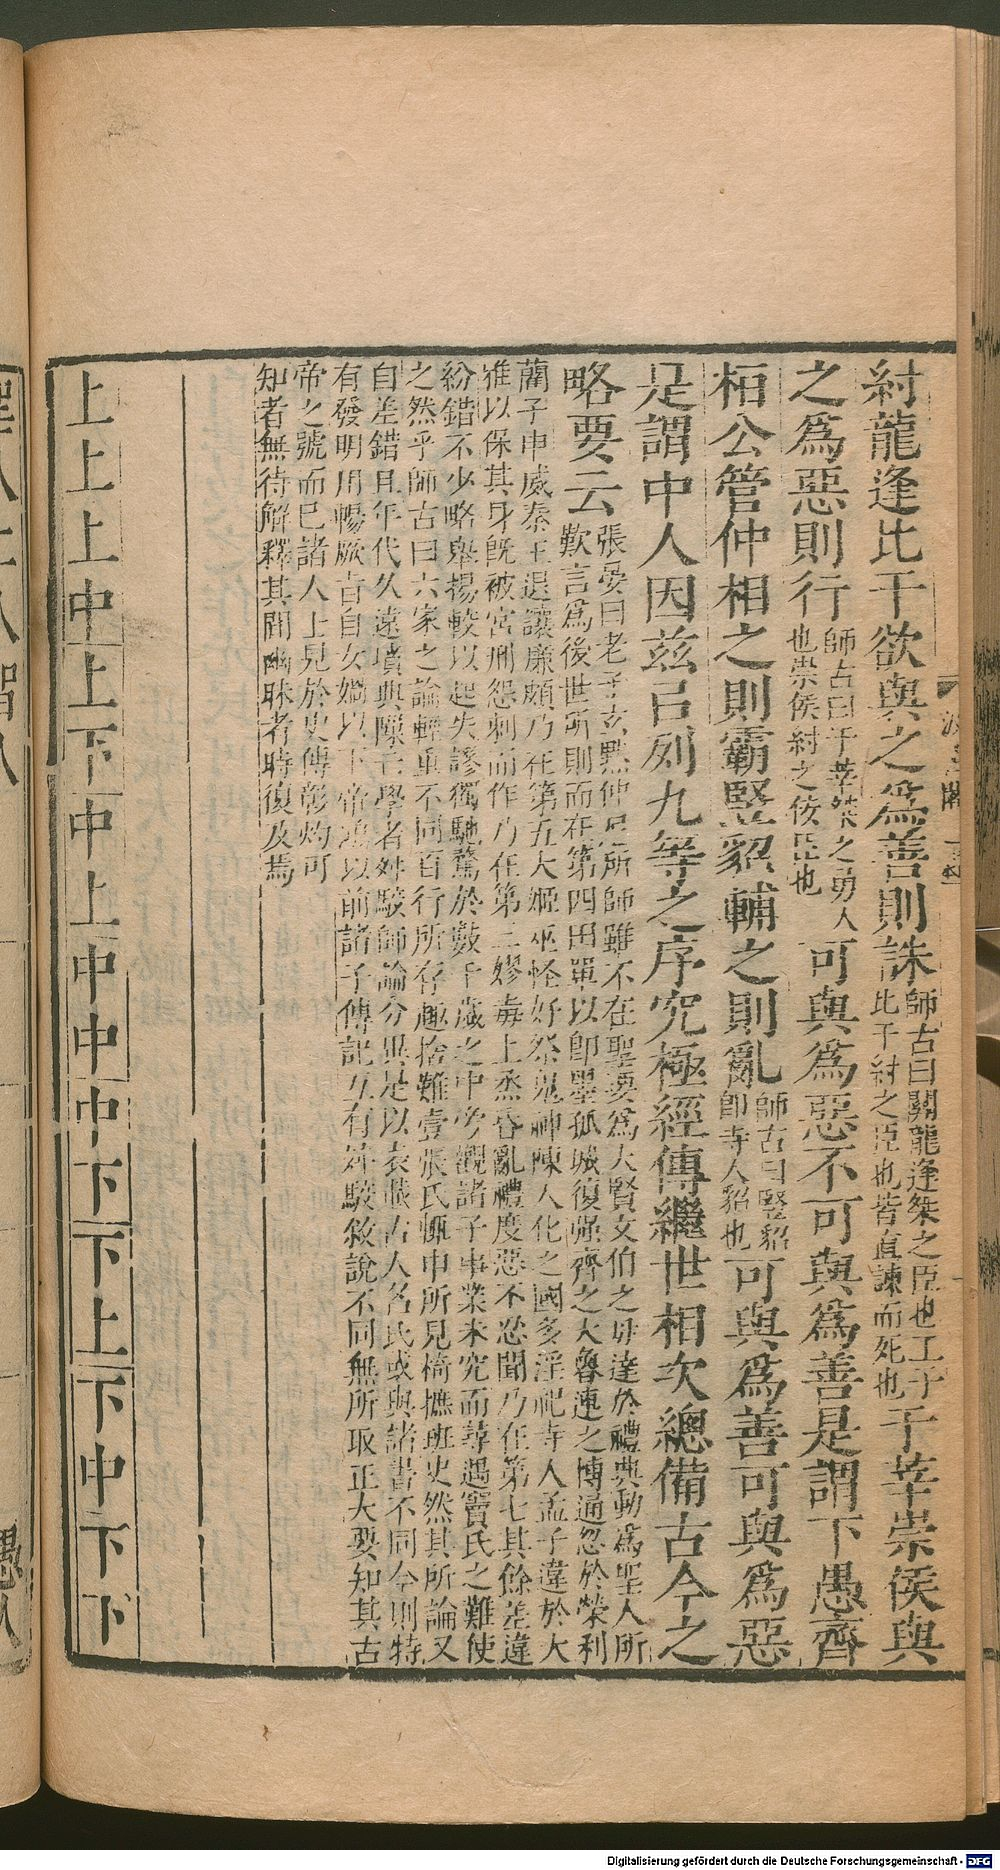 紂龍逢比干欲與之爲善則誅師古曰關龍逢桀之臣也王子比干紂之臣也皆直諫而死也于莘崇侯與
之爲惡則行師古曰于莘桀之勇人也崇侯紂之佞臣也可與爲惡不可與爲善是謂下愚齊
桓公管仲相之則霸豎貂輔之則亂師古曰豎貂即寺人貂也可與爲善可與爲惡
是謂中人因兹㠯列九等之序究極經傳繼世相次總備古今之
略要云張晏曰老子玄默仲尼所師雖不在聖要爲大賢文伯之母達於禮典動爲聖人所
歎言爲後世所則而在第四田單以即墨孤城復彊齊之大魯連之博通忽於榮利
藺子申威秦王退讓廉頗乃在第五大姬巫怪好祭鬼神陳人化之國多淫祀寺人孟子違於大
雅以保其身旣被宮刑怨刺而作乃在第三嫪毐上烝昏亂禮度惡不忍聞乃在第七其餘差違
紛錯不少略舉揚較以起失謬獨馳騖於數千歲之中旁觀諸子事業未究而尋遇竇氏之難使
之然乎師古曰六家之論輕重不同百行所存趣捨難壹張氏輒申所見掎摭班史然其所論又
自差錯且年代久遠墳典隳亡學者舛駮師論分異是以表載古人名氏或與諸書不同今則特
有發明用暢厥旨自女媧以下帝鴻以前諸子傳記互有舛駮敘說不同無所取正大要知其古
帝之號而已諸人上見於史傳彰灼可
知者無待解釋其閒幽昧者時復及焉
上上
上中
上下
中上
中中
中下
下上
下中
下下
Digitalisierung gefördert durch die Deutsche Forschungsgemeinschaft - DFG